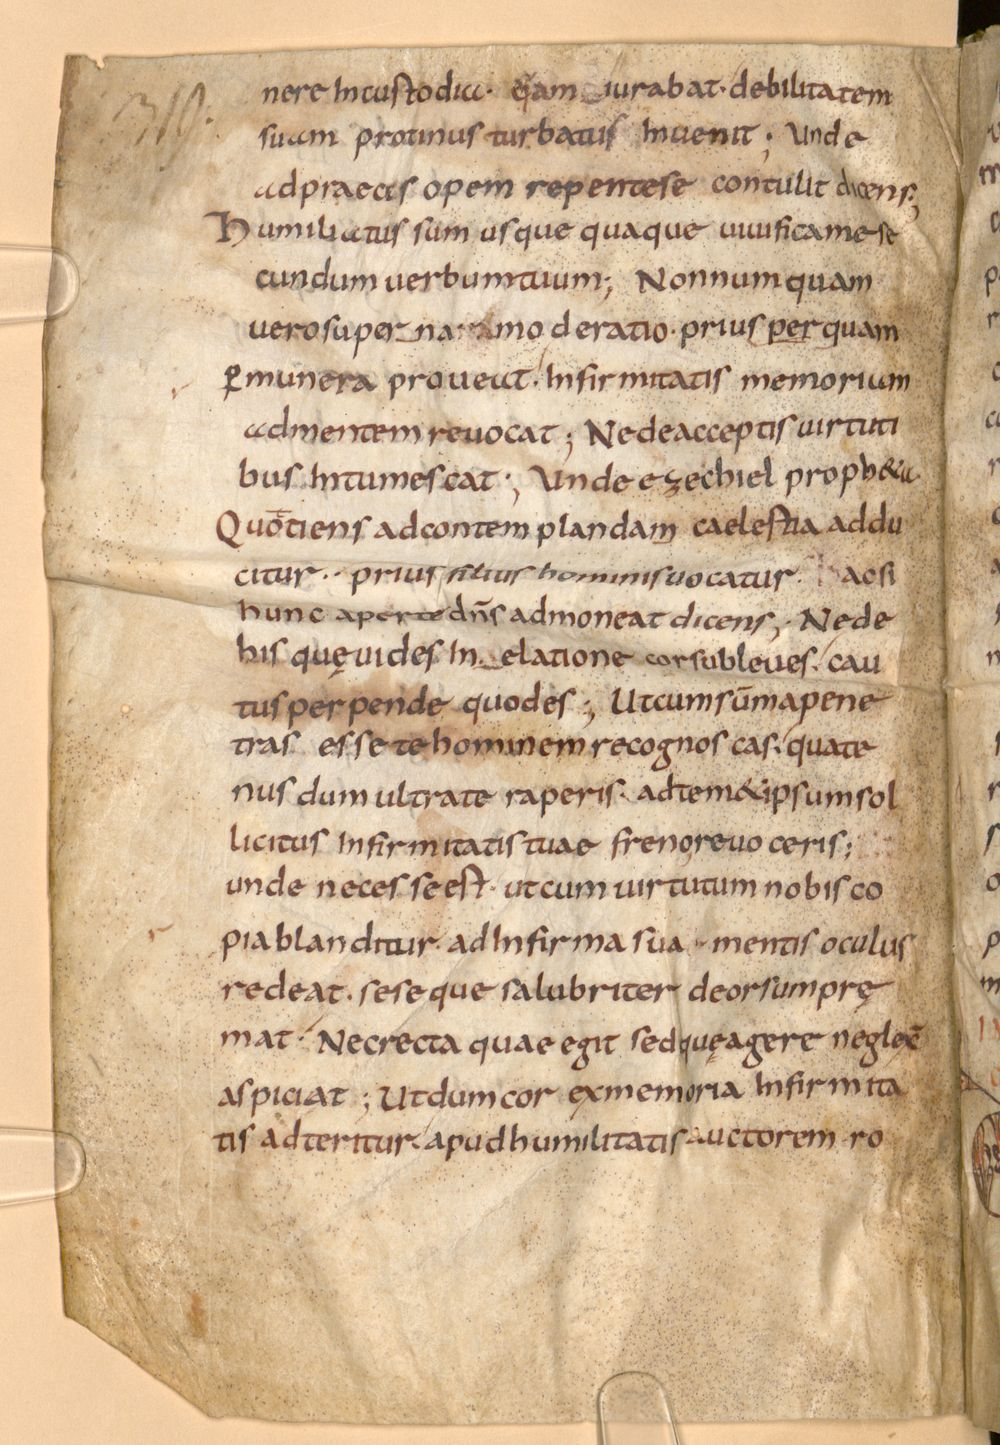 319.
nere incustodia. quam iurabat. debilitatem
suam protinus turbatus invenit; Unde
adpraeces opem repentese contulit dicens;
Humiliatus sum usque quaque vivificamese
cundum verbumtuum; Nonnumquam
verosuperna moderatio. priusperquam
ꝑmunera proveat. infirmitatis memoriam
admentem revocat; Nedeacceptis virtuti
bus intumescat; Unde ezechiel proph&a.
Quōtiens adcontemplandam caelestia addu
citur. prius filius hominis vocatur. acsi
hunc aperte dn̄s admoneat dicens; Nede
his quęvides in elatione corsubleves. cau
tusperpende quodes; Utcumsūmapene
tras essetehominemrecognoscas. quate
nusdumultrate raperis. adtem&ipsumsol
licitus infirmitatistuae frenorevoceris;
unde necesseest. utcumvirtutumnobisco
piablanditur. adinfirmasua mentis oculus
redeat. seseque salubriter deorsumprę
mat. Necrecta quae egit sedquęagere neglec̄
aspiciat; Utdumcor exmemoria infirmita
tis adteritur. apudhumilitatis auctorem ro